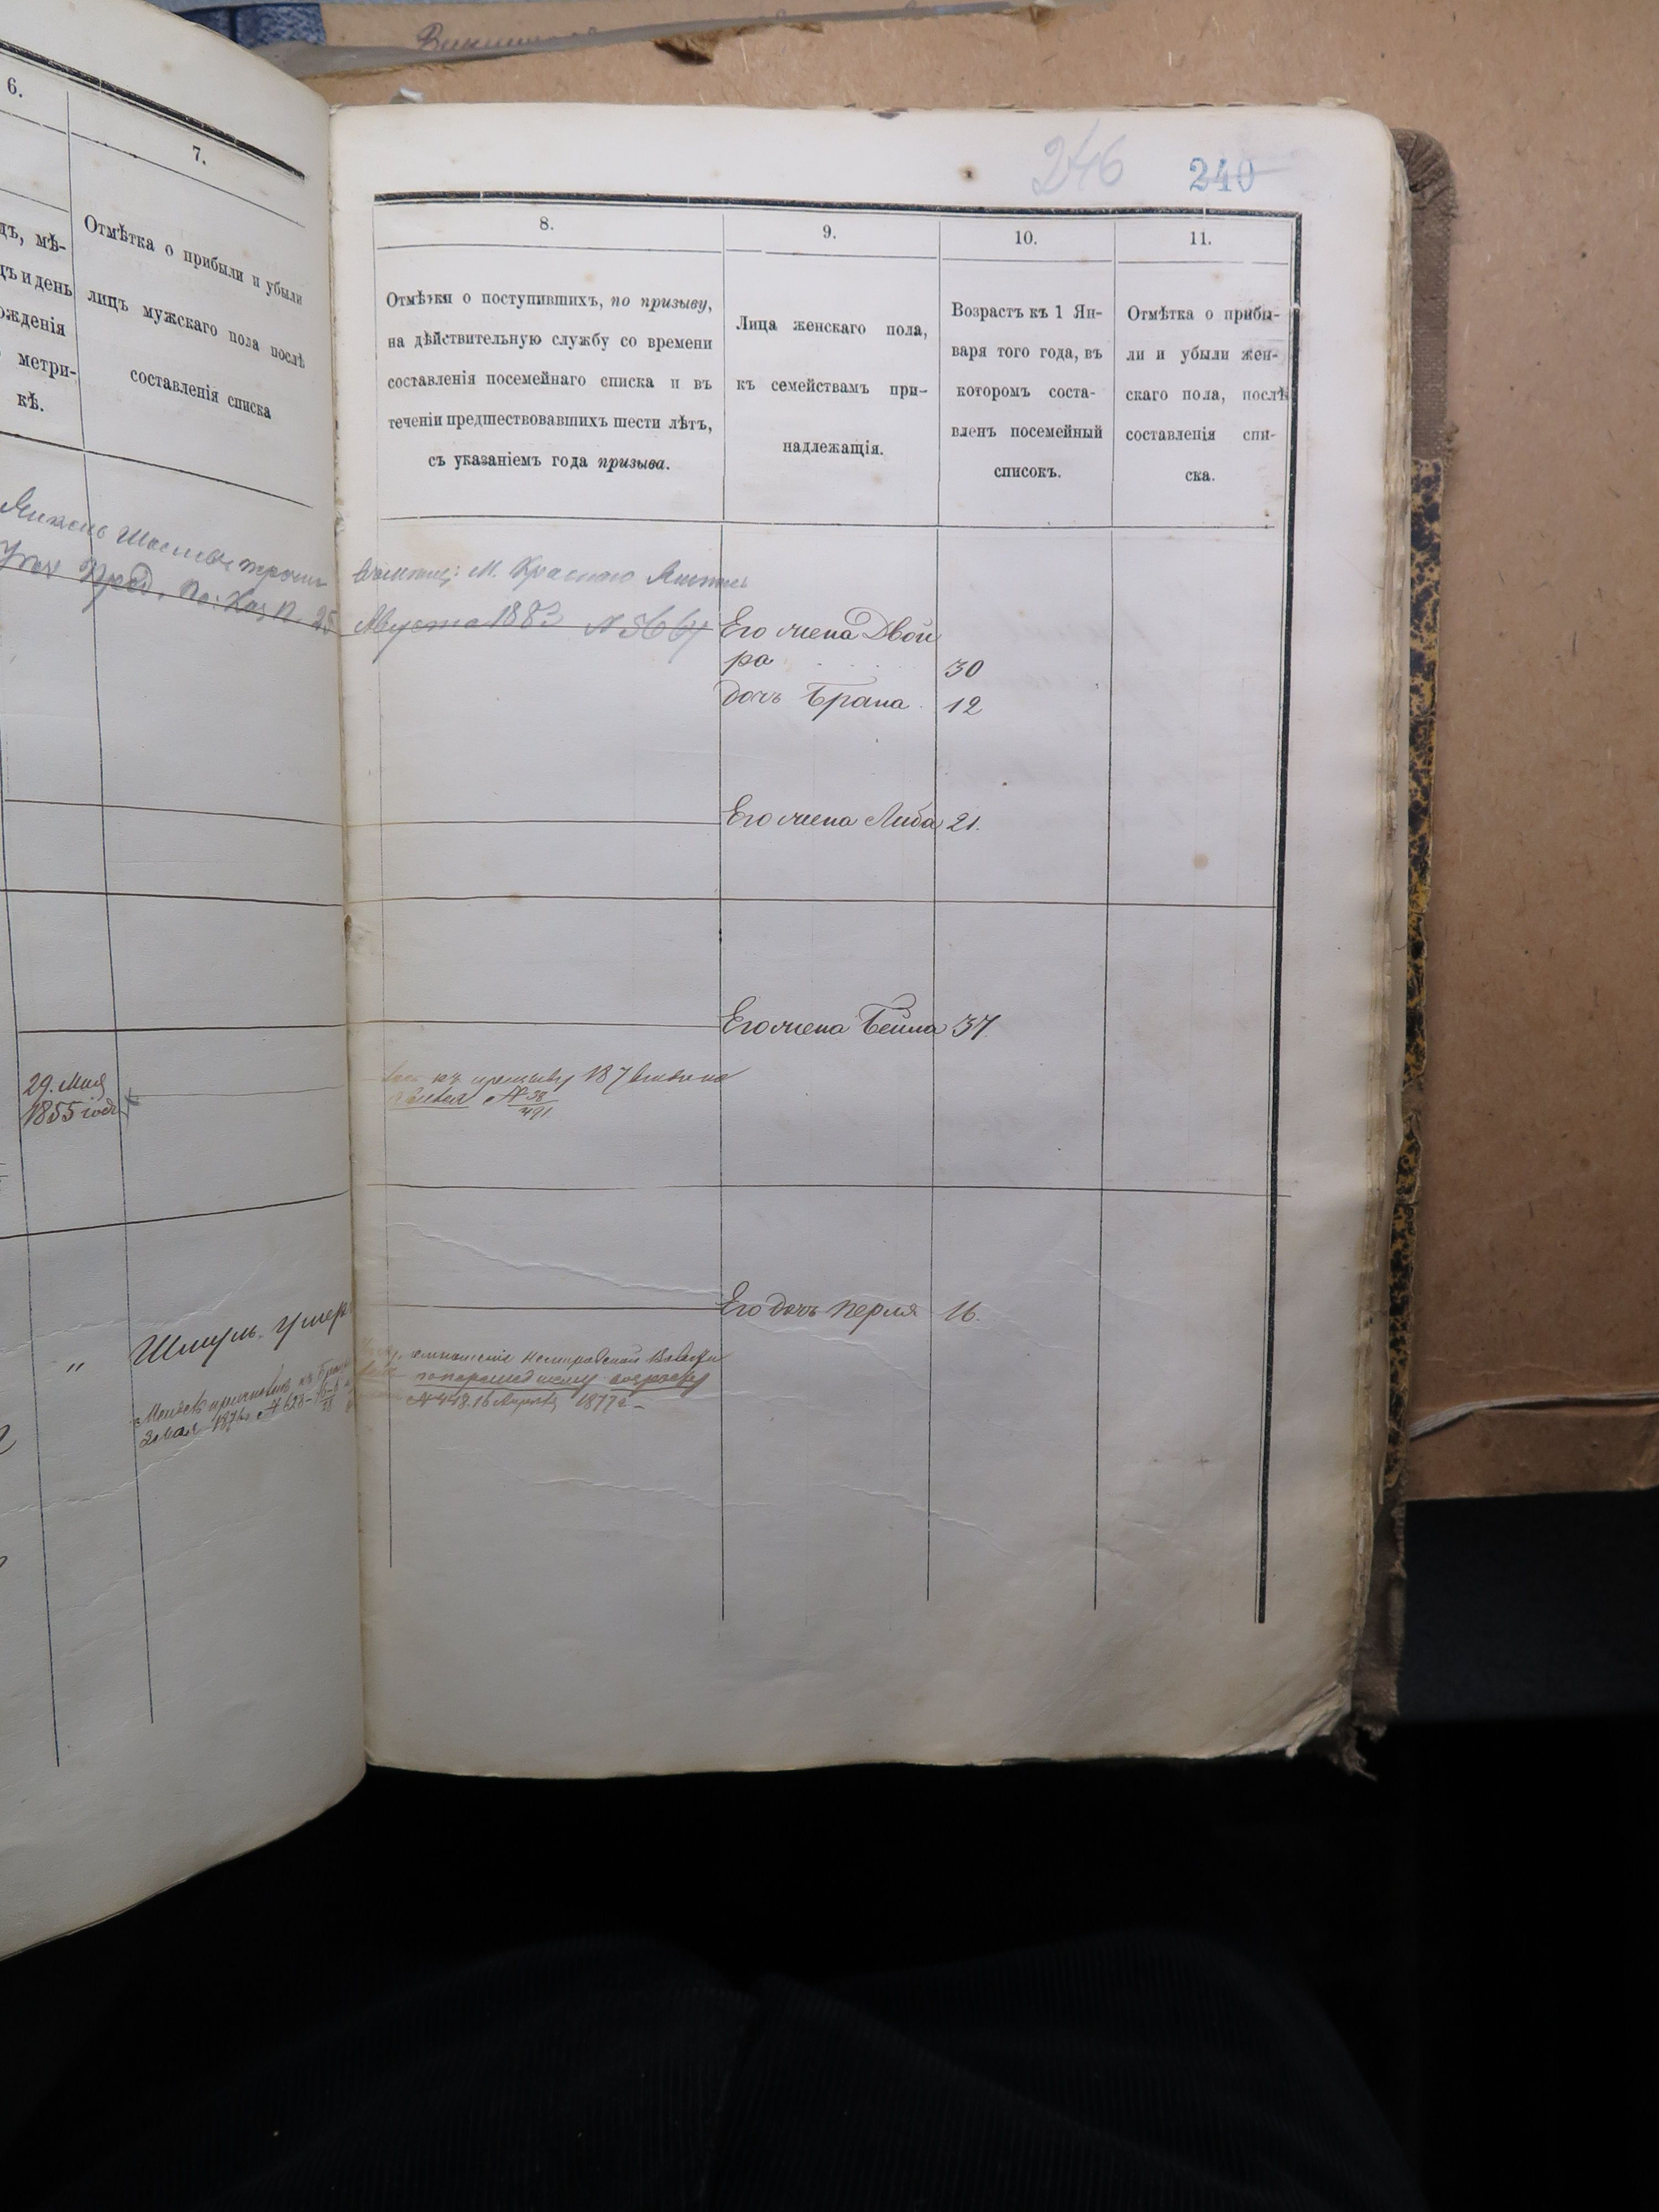 246 240
6.
7.
дъ, мѣ-
цъ и день
ожденія
метри-
кѣ.
Отмѣтка о прибыли и убыли
лицъ мужскаго пола послѣ
составленія списка
8.
Отмѣтки о поступившихъ, по призыву,
на дѣйствительную службу со времени
составленія посемейнаго списка и въ
теченіи предшествовавшихъ шести лѣтъ,
съ указаніемъ года призыва.
9.
Лица женскаго пола,
къ семействамъ при-
надлежащія.
10.
Возрастъ къ 1 Ян-
варя того года, въ
которомъ соста-
вленъ посемейный
списокъ.
11.
Отмѣтка о прибы-
ли и убыли жен-
скаго пола, послѣ
составленія спи-
ска.
М. Красно
Пред. по: Каз П. 25 Августа 1883 N 5667
Его жена Двой
ра 30
дочь Брана 12
Его жена Либа 21.
Его жена Бейла 37.
29. Мая
1855 года
къ призыву 187
N 38
491
Его дочь Перля 16.
" Шмуль. умер
2 мая 187
N 448. 16 1877 г.